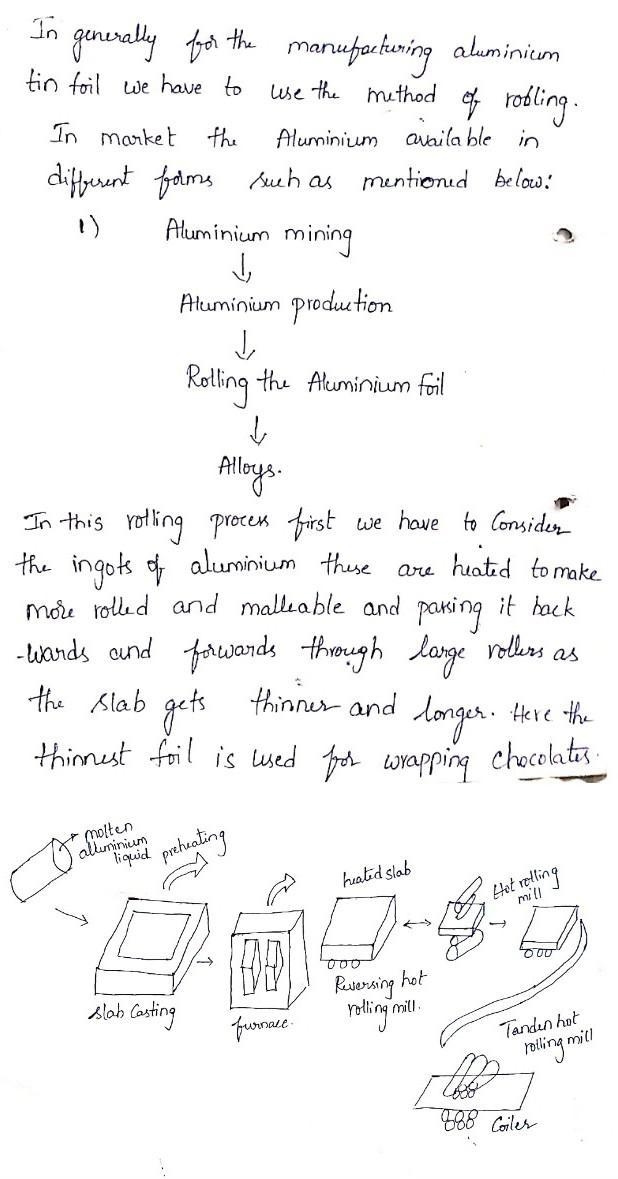 In generally for the manufacturing aluminium
tin foil we have to use the method of rolling.
In market the Aluminium available in
different forms such as mentioned below:
1) Aluminium mining
↓
Aluminium production
↓
Rolling the Aluminium foil
↓
Alloys.
In this rolling process first we have to Consider
the ingots of aluminium these are heated to make
more rolled and malleable and passing it back
-wards and forwards through large rollers as
the slab gets thinner and longer. Here the
thinnest foil is used for wrapping chocolates.
molten
alluminium
liquid
preheating
Slab Casting
furnace.
heated slab
Reversing hot
rolling mill.
Hot rolling
mill
Tanden hot
rolling mill
Coiler